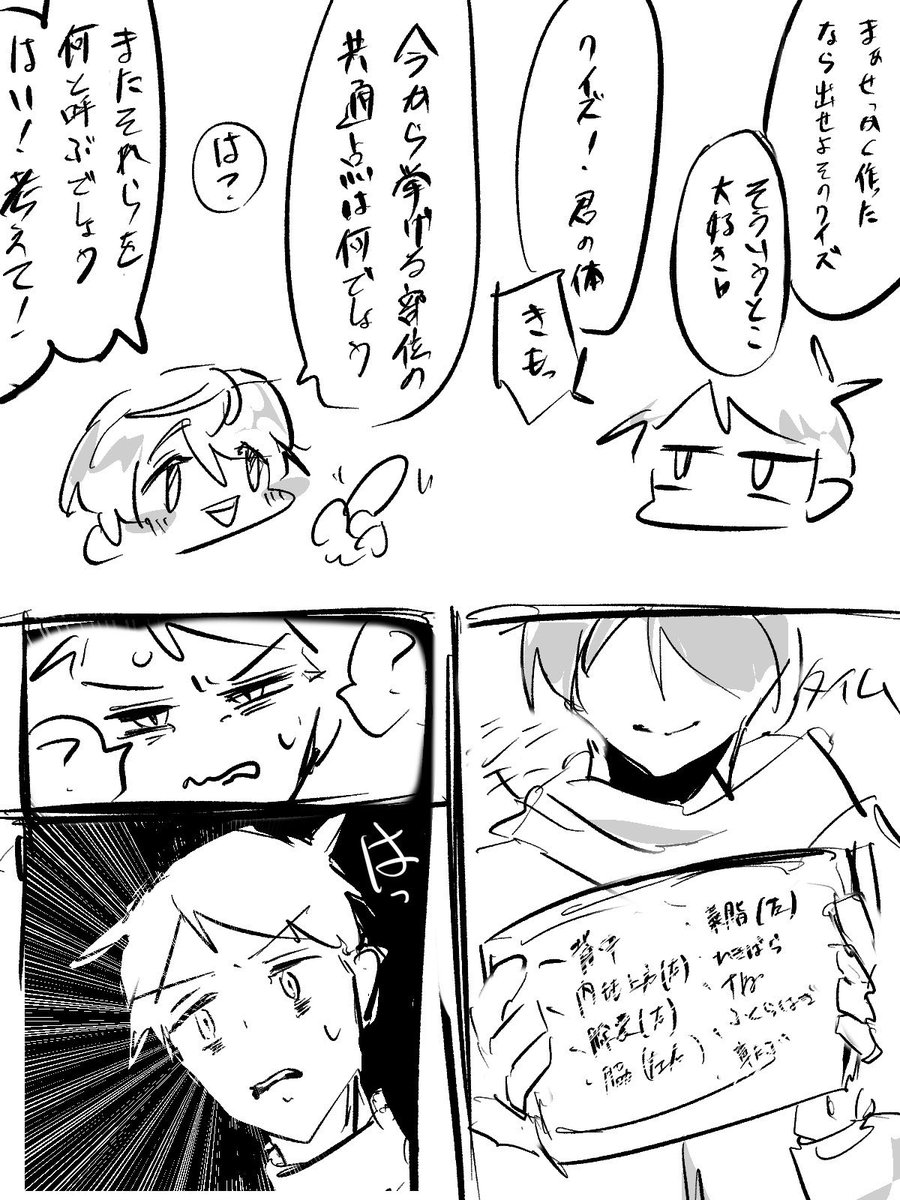 まぁせっかく作った
なら出せよそのクイズ
そういうとこ
大好き♥
クイズ！君の体
きもっ
今から挙げる部位の
共通点は何でしょう
は？
またそれらを
何と呼ぶでしょう
はい！考えて！
タイム
薬脂(左)
わきばら
すね
ふくらはぎ
背中
？
？
はっ